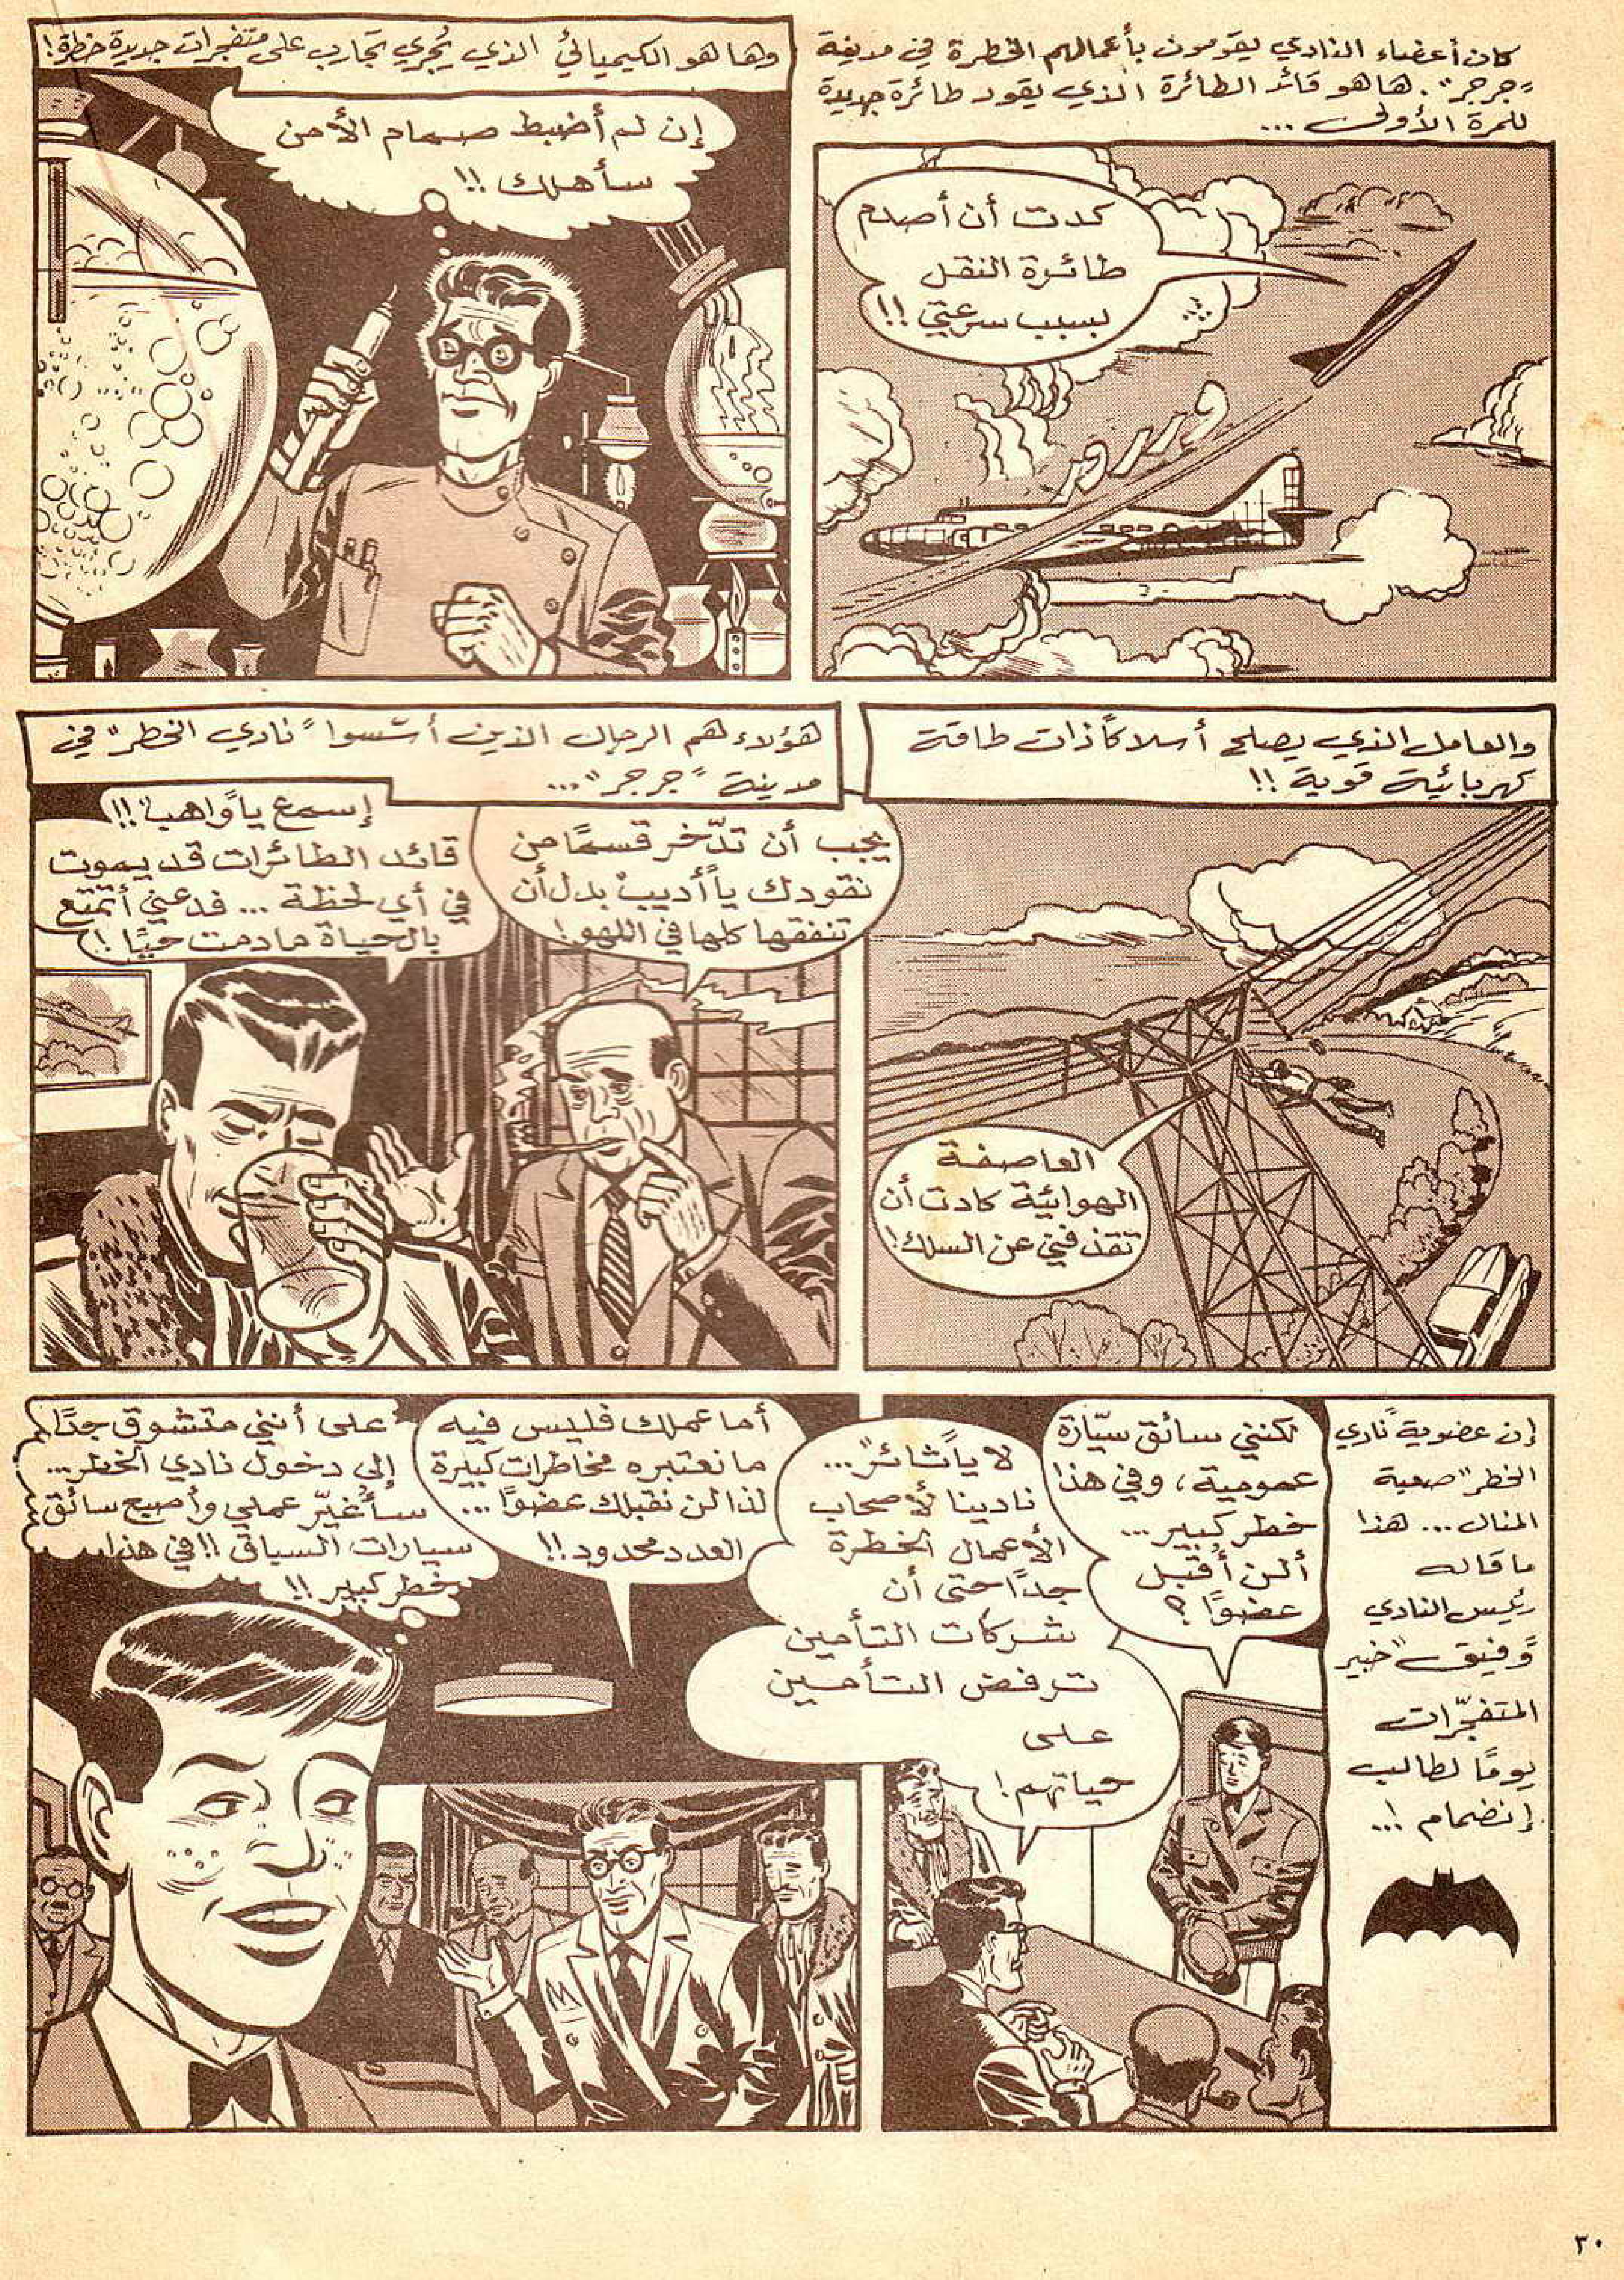 كان أعضاء النادي يقومون بأعمالهم الخطرة في مدينة
"جرجر". ها هو قائد الطائرة الذي يقود طائرة جديدة
للمرة الأولى ...
كدت أن أصدم
طائرة النقل
بسبب سرعتي !!
وررور
وها هو الكيميائي الذي يُجري تجارب على متفجرات جديدة خطرة !
إن لم أضبط صمام الأمن
سأهلك !!
والعامل الذي يصلح أسلاكًا ذات طاقة
كهربائية قوية !!
العاصفة
الهوائية كادت أن
تقذفني عن السلك !
هؤلاء هم الرجال الذين أسّسوا "نادي الخطر" في
مدينة "جرجر" ...
يجب أن تدّخر قسمًا من
نقودك يا "أديب" بدل أن
تنفقها كلها في اللهو !
إسمع يا "واهب" !!
قائد الطائرات قد يموت
في أي لحظة ... فدعني أتمتع
بالحياة ما دمت حيًا !
إن عضوية "نادي
الخطر" صعبة
المنال ... هذا
ما قاله
رئيس النادي
"وفيق" خبير
المتفجّرات
يومًا لطالب
إنضمام !..
لكنني سائق سيّارة
عمومية، وفي هذا
خطر كبير ...
ألن أُقبل
عضوًا ؟
لا يا "ثائر" ...
نادينا لأصحاب
الأعمال الخطرة
جدًا حتى أن
شركات التأمين
ترفض التأمين
على
حياتهم !
أما عملك فليس فيه
ما نعتبره مخاطرات كبيرة
لذا لن نقبلك عضوًا ...
العدد محدود !!
على أنني متشوق جدًا
إلى دخول نادي الخطر ...
سأُغيّر عملي وأصبح سائق
سيارات السباق !! في هذا
خطر كبير !!
٣٠